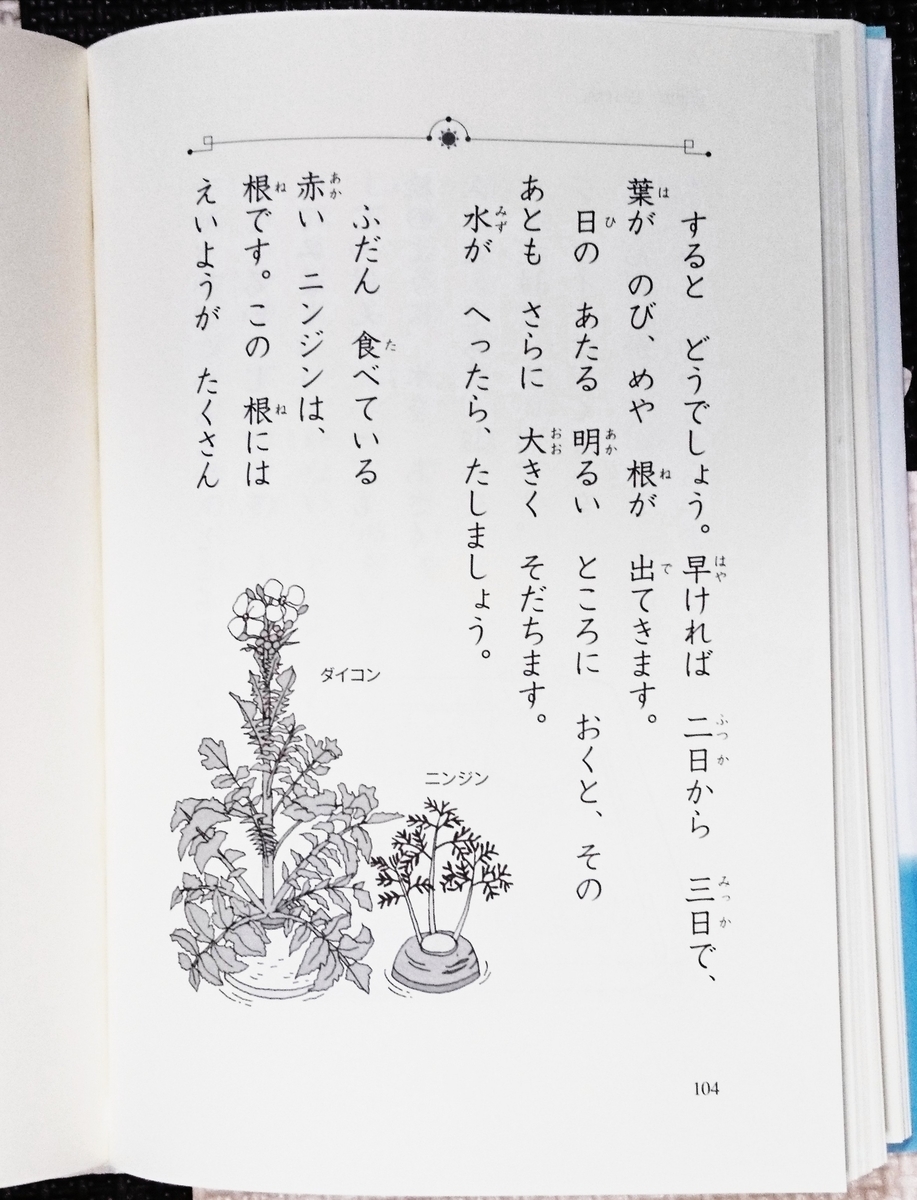 すると どうでしょう。早ければ 二日から 三日で、
葉が のび、めや 根が 出てきます。
日の あたる 明るい ところに おくと、その
あとも さらに 大きく そだちます。
水が へったら、たしましょう。
ふだん 食べている
赤い ニンジンは、
根です。この 根には
えいようが たくさん
ダイコン
ニンジン
104